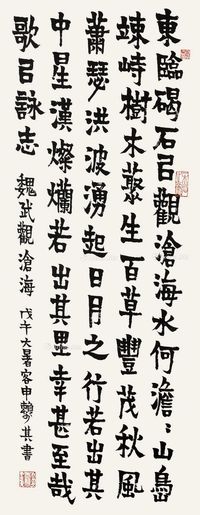 東臨碣石㠯觀滄海水何澹〻山島
竦峙樹木藂生百草豐茂秋風
蕭瑟洪波湧起日月之行若出其
中星漢燦爛若出其里幸甚至哉
歌㠯詠志 魏武觀滄海 戊午大暑客申其書